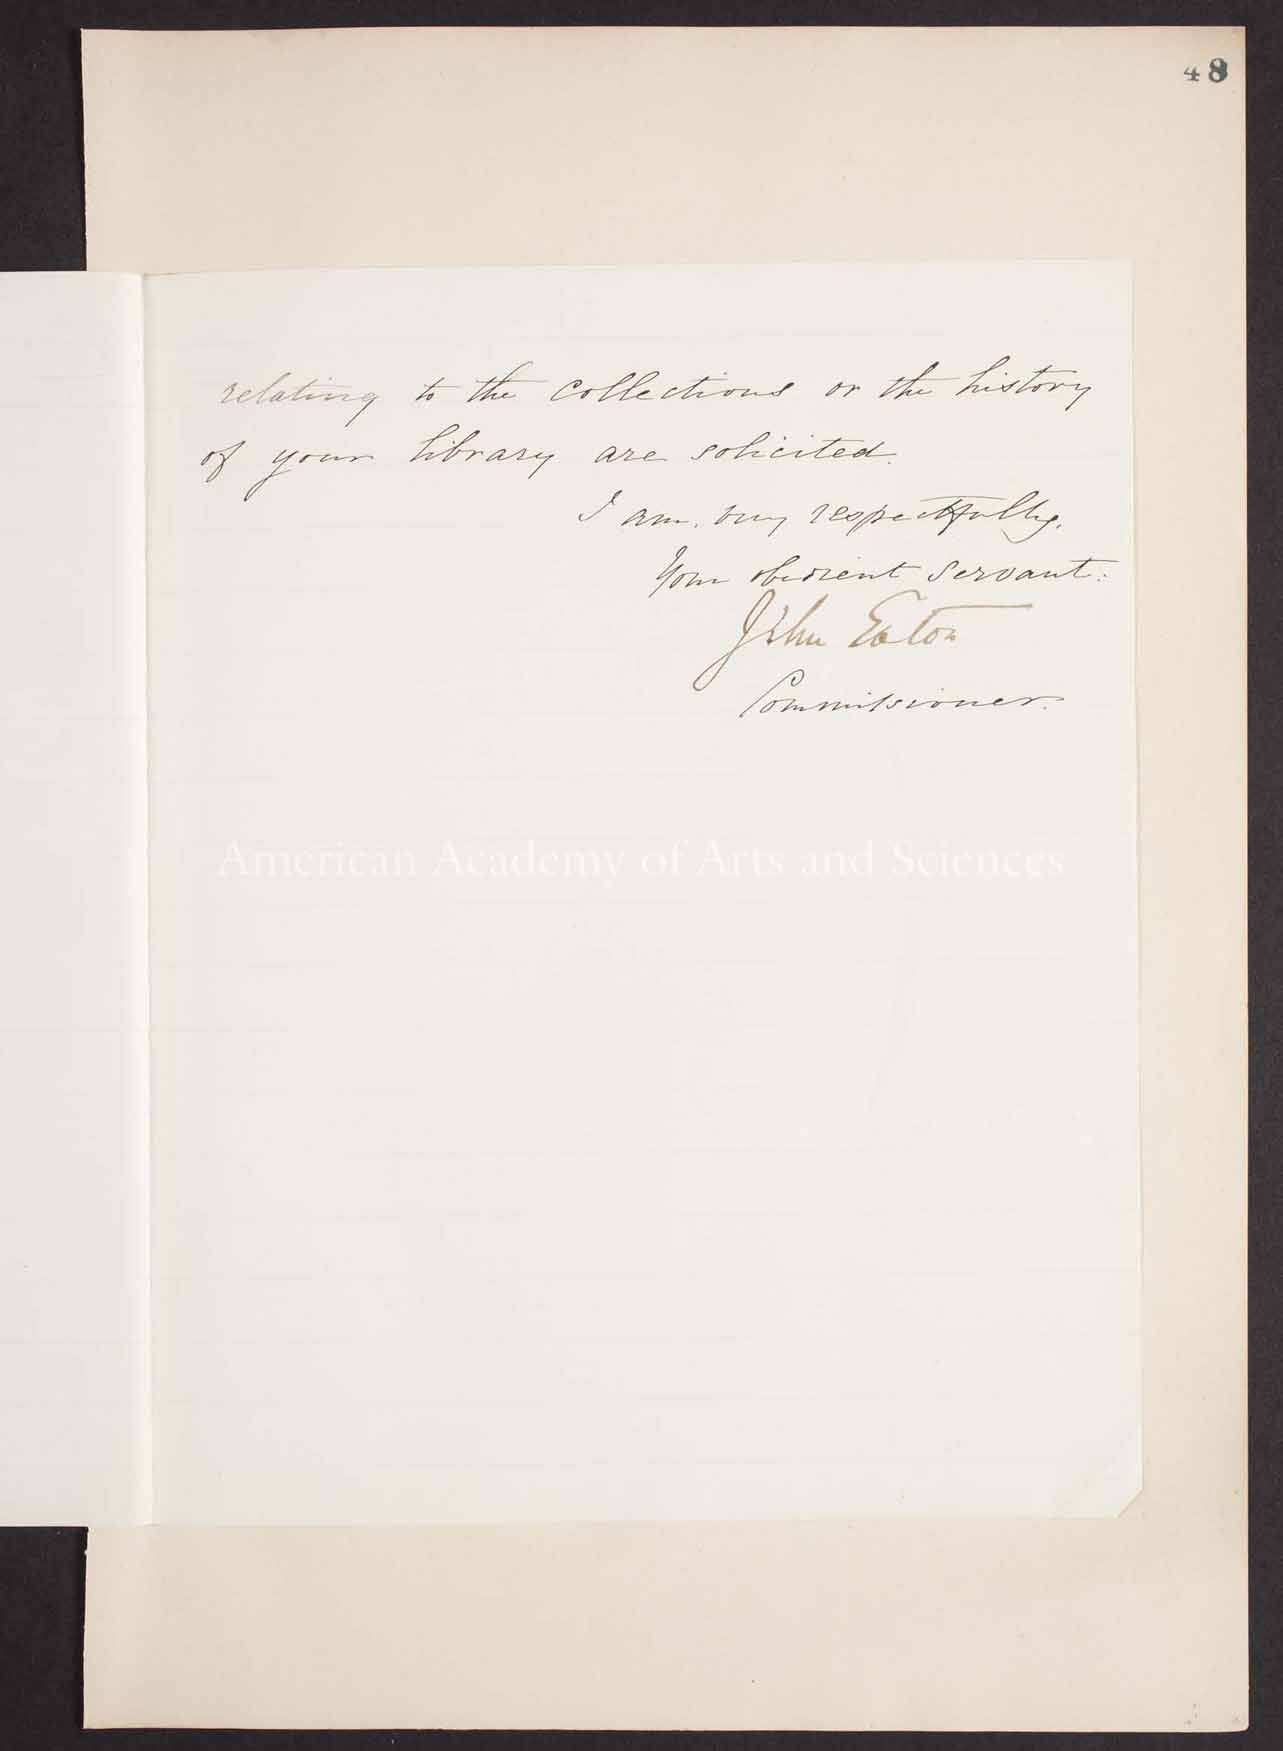 48
relating to the collections or the history
of your library are solicited.
I am, very respectfully,
Your obedient servant:
John Eaton
Commissioner.
American Academy of Arts and Sciences